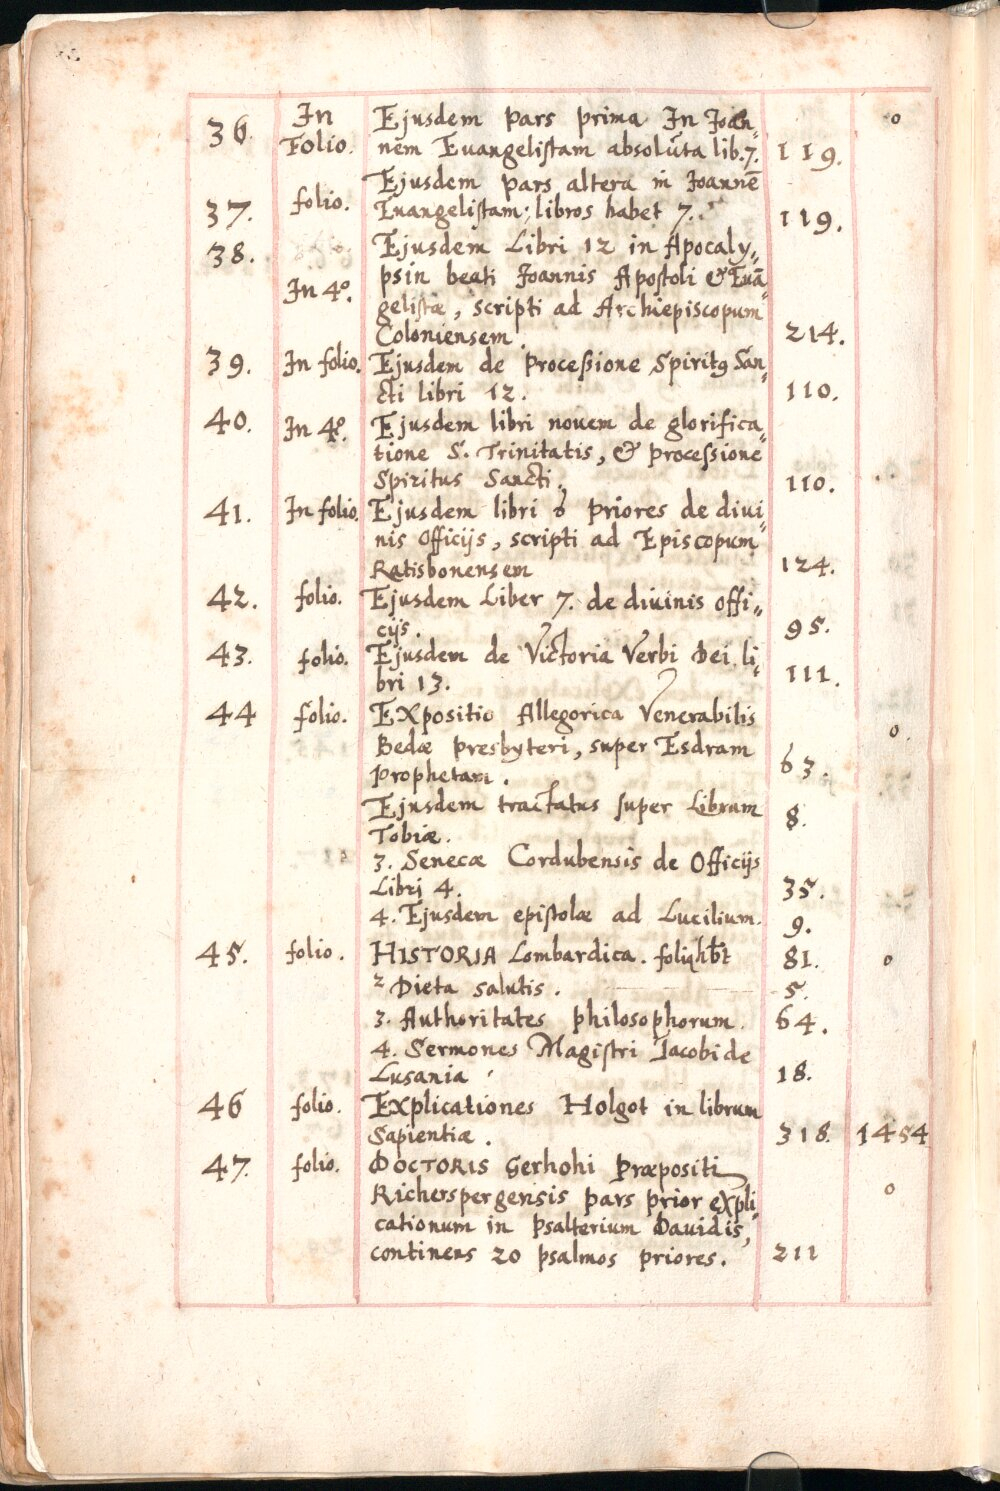 36. In Ejusdem pars prima In Joan„ o
Folio. nem Euangelistam absolūta lib. 7. 119.
Ejusdem pars altera in Joannē
37. folio. Euangelistam; libros habet 7. 119.
38. Ejusdem Libri 12 in Apocaly„
In 4º. psin beati Joannis Apostoli & Euā„
gelistæ, scripti ad Archiepiscopum
Coloniensem. 214.
39. In folio. Ejusdem de Processione Spiritꝰ San„
cti libri 12. 110.
40. In 4º. Ejusdem libri nouem de glorifica„
tione S. Trinitatis, & processione
Spiritus Sancti. 110.
41. In folio. Ejusdem libri 6 priores de diui„
nis Officijs, scripti ad Episcopum
Ratisbonensem 124.
42. folio. Ejusdem Liber 7. de diuinis offi„
cijs. 95.
43. folio. Ejusdem de Victoria Verbi Dei li„
bri 13. 111.
44 folio. Expositio Allegorica Venerabilis
Bedæ presbyteri, super Esdram o
prophetam. 63.
Ejusdem tractatus super Librum 8.
Tobiæ.
3. Senecæ Cordubensis de Officijs
Libri 4. 35.
4. Ejusdem epistolæ ad Lucilium. 9.
45. folio. HISTORIA Lombardica. 81. o
2 Dieta salutis. 5.
3. Authoritates philosophorum. 64.
4. Sermones Magistri Jacobi de
Lusania 18.
46 folio. Explicationes Holgot in librum
Sapientiæ. 318. 1454
47. folio. DOCTORIS Gerhohi Præpositi
Richerspergensis pars prior expli„ o
cationum in Psalterium Dauidis,
continens 20 psalmos priores. 211